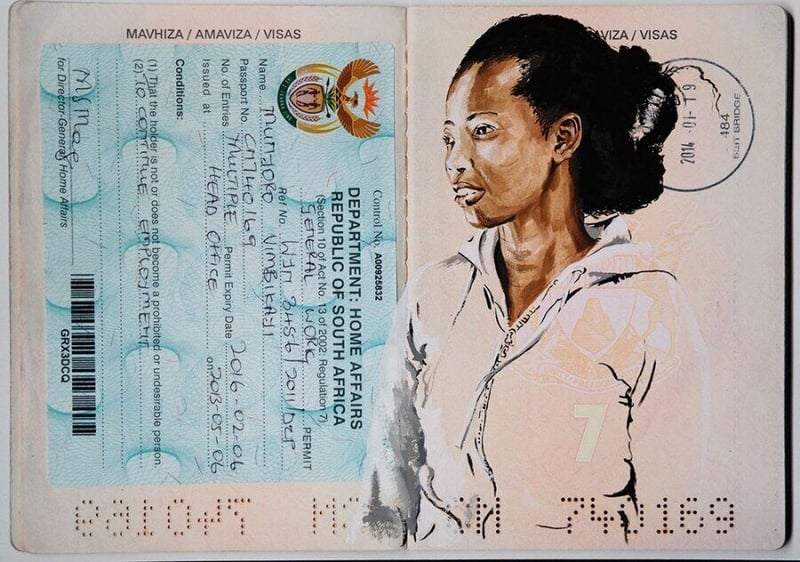 MAVHIZA / AMAVIZA / VISAS
Control No. A00925832
DEPARTMENT: HOME AFFAIRS
REPUBLIC OF SOUTH AFRICA
(Section 10 of Act No. 13 of 2002: Regulation 7)
GENERAL WORK PERMIT
Ref No.
Name
Passport No.
No. of Entries MULTIPLE Permit Expiry Date 2016-02-06
Issued at HEAD OFFICE on 2013-05-06
Conditions:
(1) That the holder is not or does not become a prohibited or undesirable person.
(2) TO CONTINUE EMPLOYMENT
for Director-General Home Affairs
GRX3DCQ
AVIZA / VISAS
2014 -01- 19
484
BEIT BRIDGE
UNITY FREEDOM
7
740169